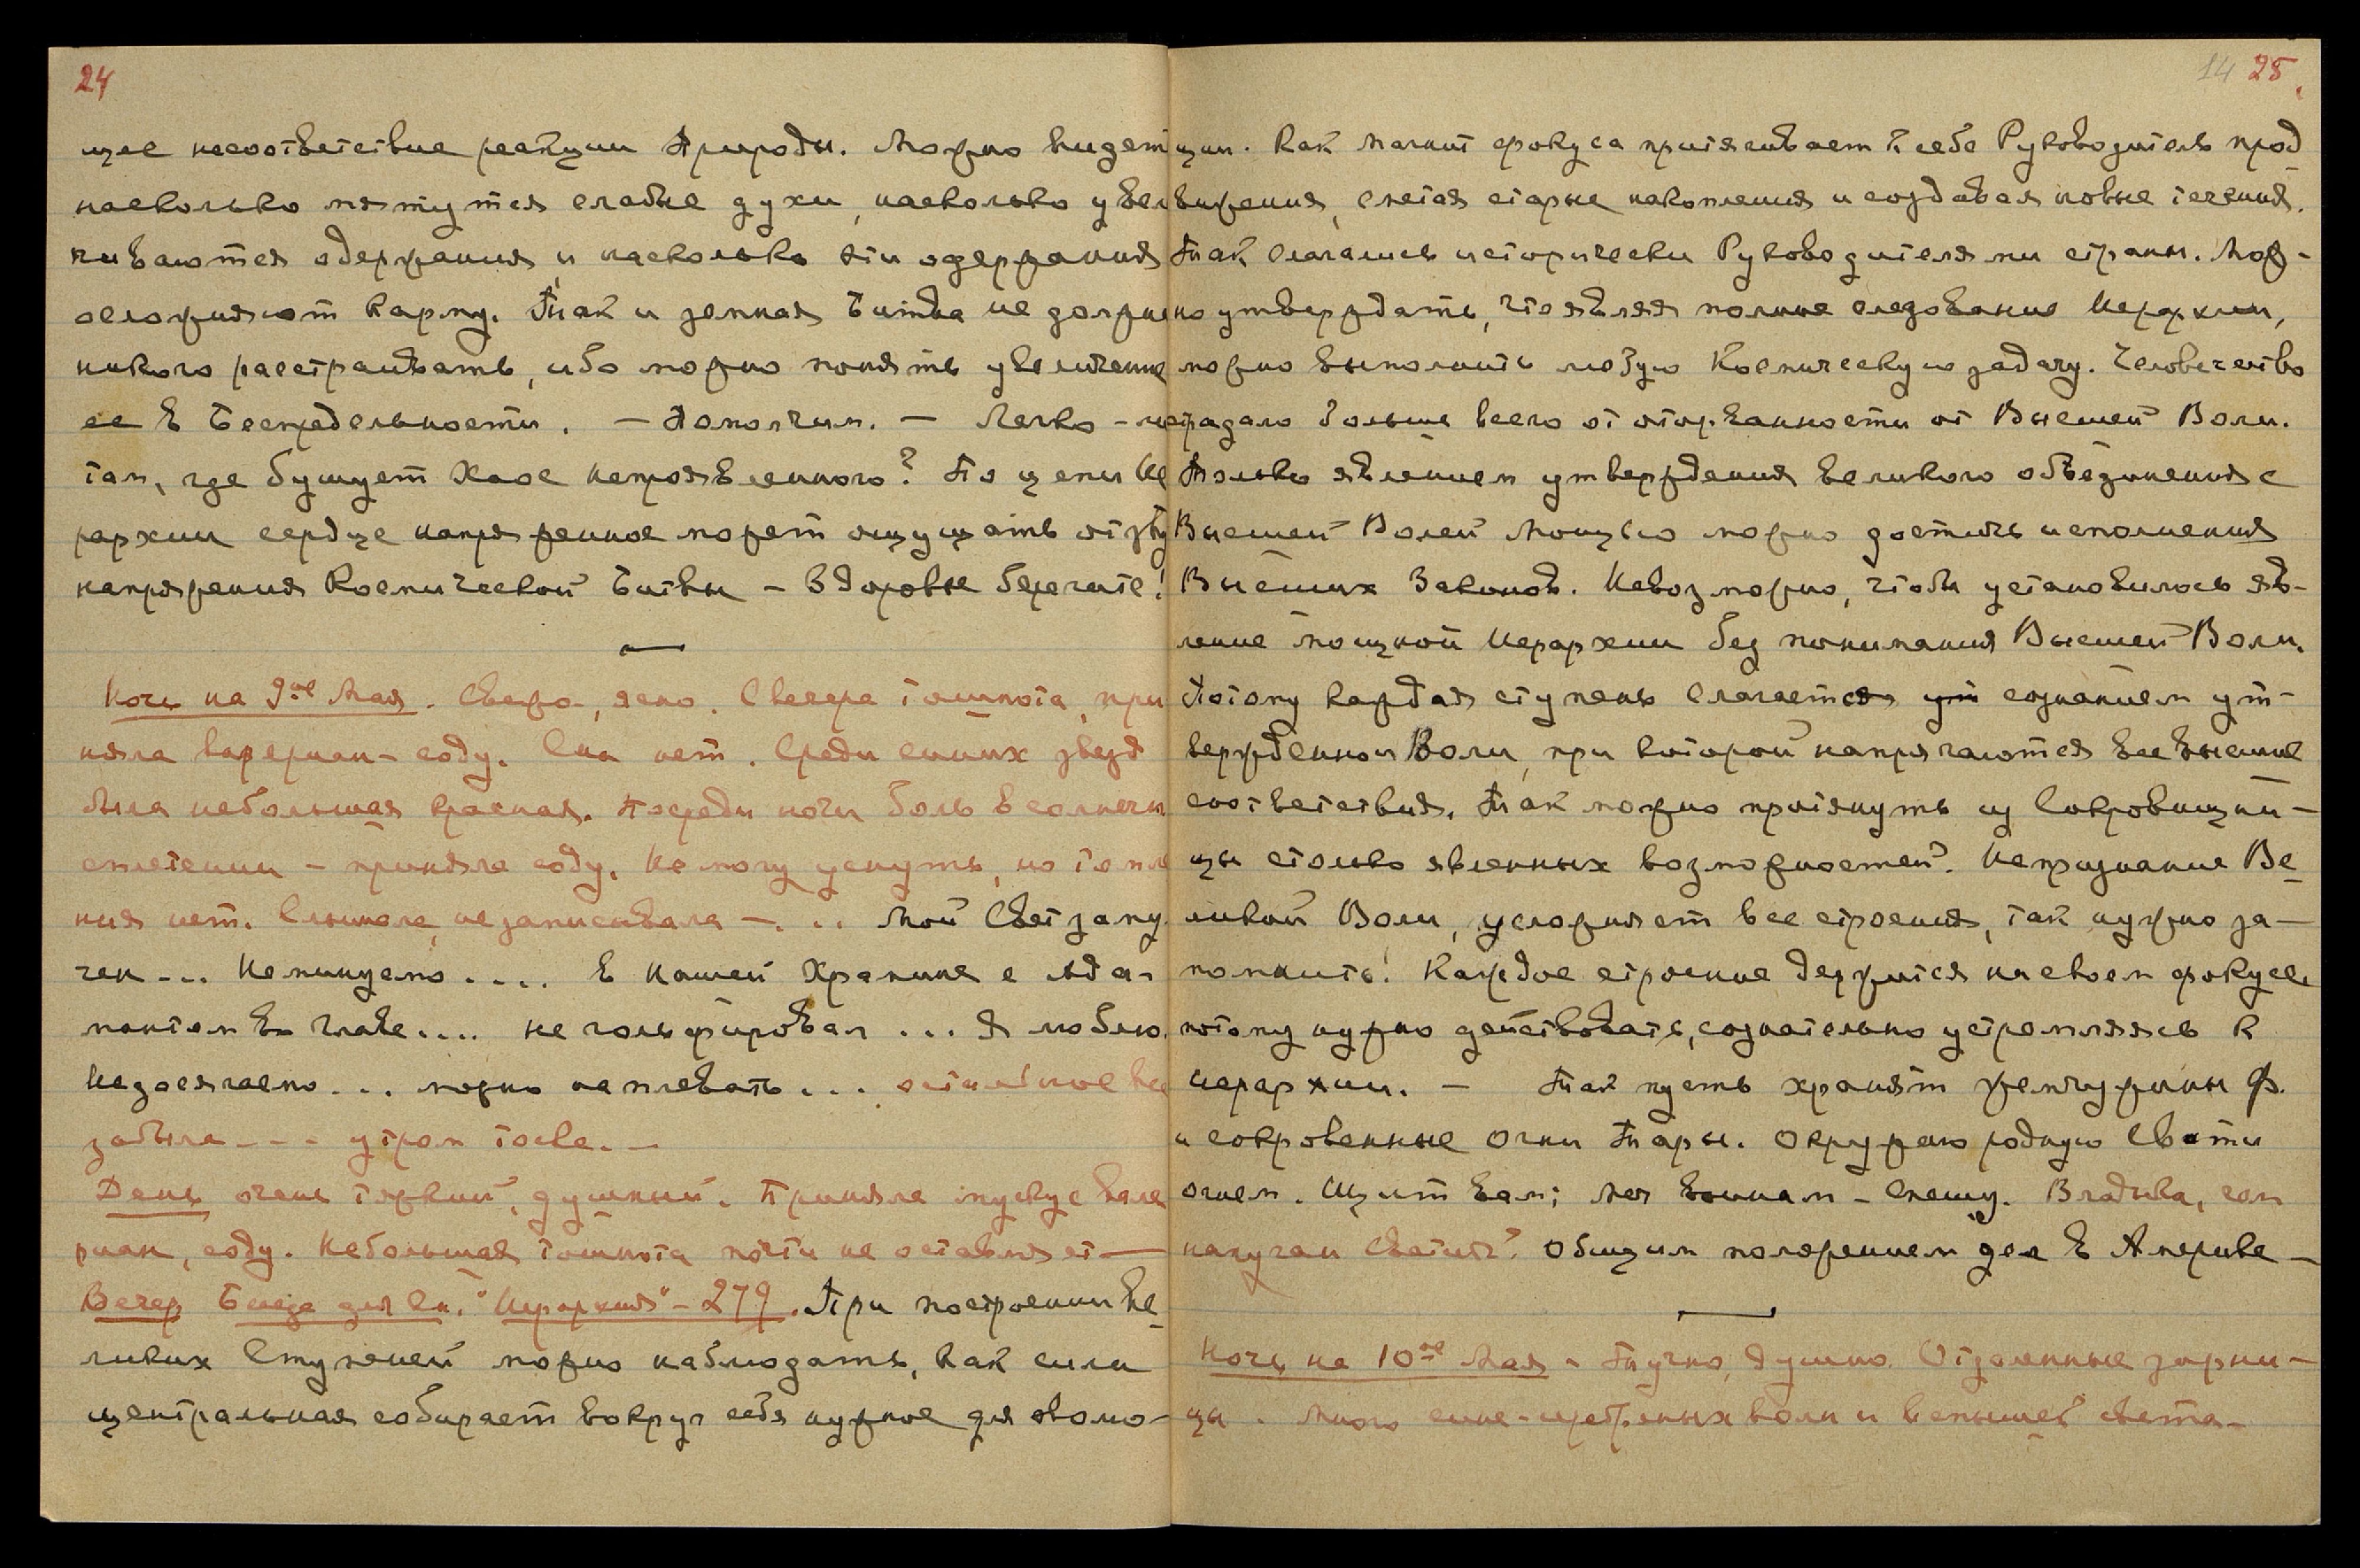 24
щее несоответствие реакции Природы. Можно видеть
насколько мятутся слабые духи, насколько увели
чиваются одержания и насколько эти одержания
осложняют Карму. Так и земная Битва не должна
никого расстраивать, ибо можно понять увеличение
ее в Беспредельности. — Помолчим. — Легко – ли
там, где бушует Хаос непроявленного? По цепи Ие
рархии сердце напряженное может ощущать отзву
напряжения Космической Битвы – Здоровье берегите!
Ночь на 9ое Мая. Свежо, ясно. С вечера тошнота, при
няла валериан – соду. Сна нет. Среди синих звезд
была небольшая красная. Посреди ночи боль в солнечн
сплетении – приняла соду. Не могу уснуть, но томле
ния нет. Слышала, не записывала – . . . Мой Свет заму
чен ... Не минуемо .... в Нашей Хранине с Ада-
мантом во главе .... не гольфировал ... Я люблю.
Недосягаемо ... можно наплевать ... остальное все
забыла --- утром тоска. —
День очень жаркий, душный. Приняла мускус вале
риан, соду. Небольшая тошнота почти не оставляет —
Вечер Беседа для Сн. "Иерархия" – 279. При построении Ве
ликих Ступеней можно наблюдать, как сила
центральная собирает вокруг себя нужное для эволю-
14 25.
ции. Как магнит фокуса притягивает к себе Руководитель прод
вижения, сметая старые накопления и создавая новые течения.
Так слагались исторически Руководителями страны. Мож-
но утверждать, что являя полное следование Иерархии,
можно выполнить любую Космическую задачу. Человечество
страдало больше всего от оторванности от Высшей Воли.
Только явлением утверждения великого объединения с
Высшей Волей Мощью можно достичь исполнения
Высших Законов. Невозможно, чтобы установилось яв-
ление мощной Иерархии без понимания Высшей Воли.
Потому каждая ступень слагается ут сознанием ут-
вержденной Воли, при которой напрягаются все высшие
соответствия. Так можно притянуть из Сокровищни-
цы столько явленных возможностей. Непризнание Ве
ликой Воли, усложняет все строения, так нужно за-
помнить! Каждое строение держится на своем фокусе,
потому нужно действовать, сознательно устремляясь к
Иерархии. — Так пусть хранят жемчужины Ф.
и сокровенные огни Тары. Окружаю родную Свати
огнем. Щит вам; меч воинам – Спешу. Владыка, сам
научая светить? Общим положением дел в Америке —
Ночь на 10ое Мая – Тучно, душно. Отдаленные зарни-
цы. Много сине-серебряных волн и вспышек света –